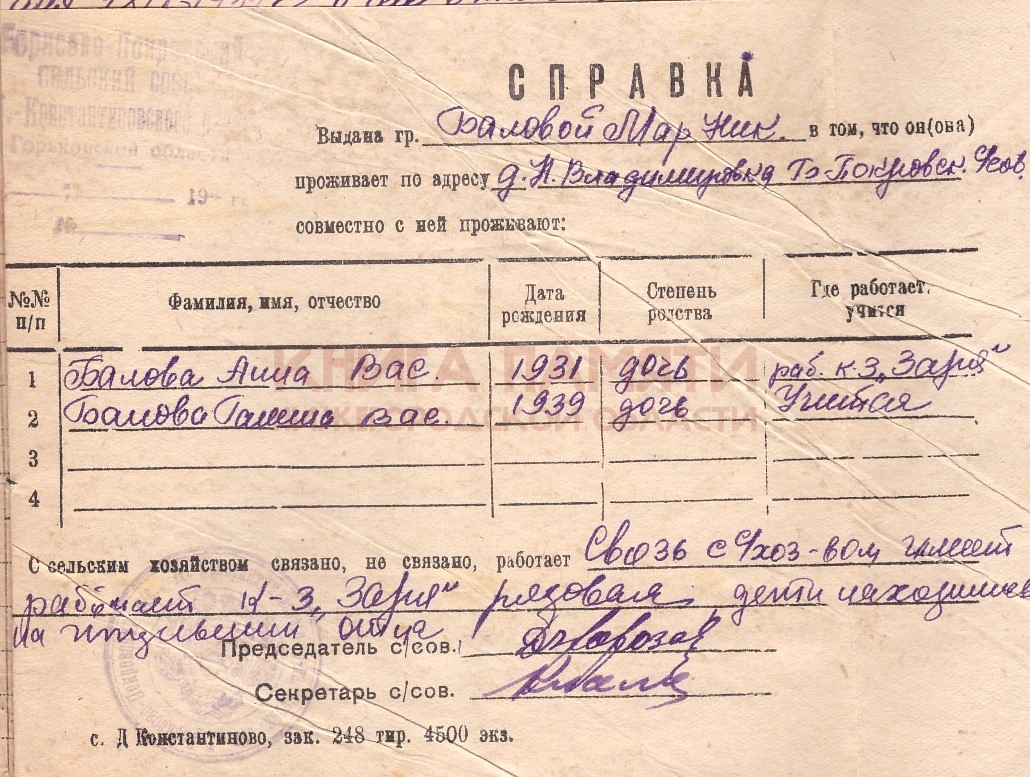 Борисово-Покровский
сельский сов
Константиновского
Горьковской области
19 г.
№
СПРАВКА
Выдана гр. Баловой Мар Ник. в том, что он(она)
проживает по адресу д. Н. Владимировка Б-Покровск. с/сов.
совместно с ней проживают:
№№ п/п Фамилия, имя, отчество Дата рождения Степень родства Где работает, учится
1 Балова Анна Вас. 1931 дочь раб. к-з „Заря"
2 Балова Галина Вас. 1939 дочь Учится
3
4
КНИГА ПАМЯТИ
НИЖЕГОРОДСКОЙ ОБЛАСТИ
С сельским хозяйством связано, не связано, работает Связь с с/хоз-вом имеет
работает к-з „Заря" рядовая дети находились
на иждивении отца
Председатель с/сов.
Секретарь с/сов.
с. Д Константиново, зак. 248 тир. 4500 экз.